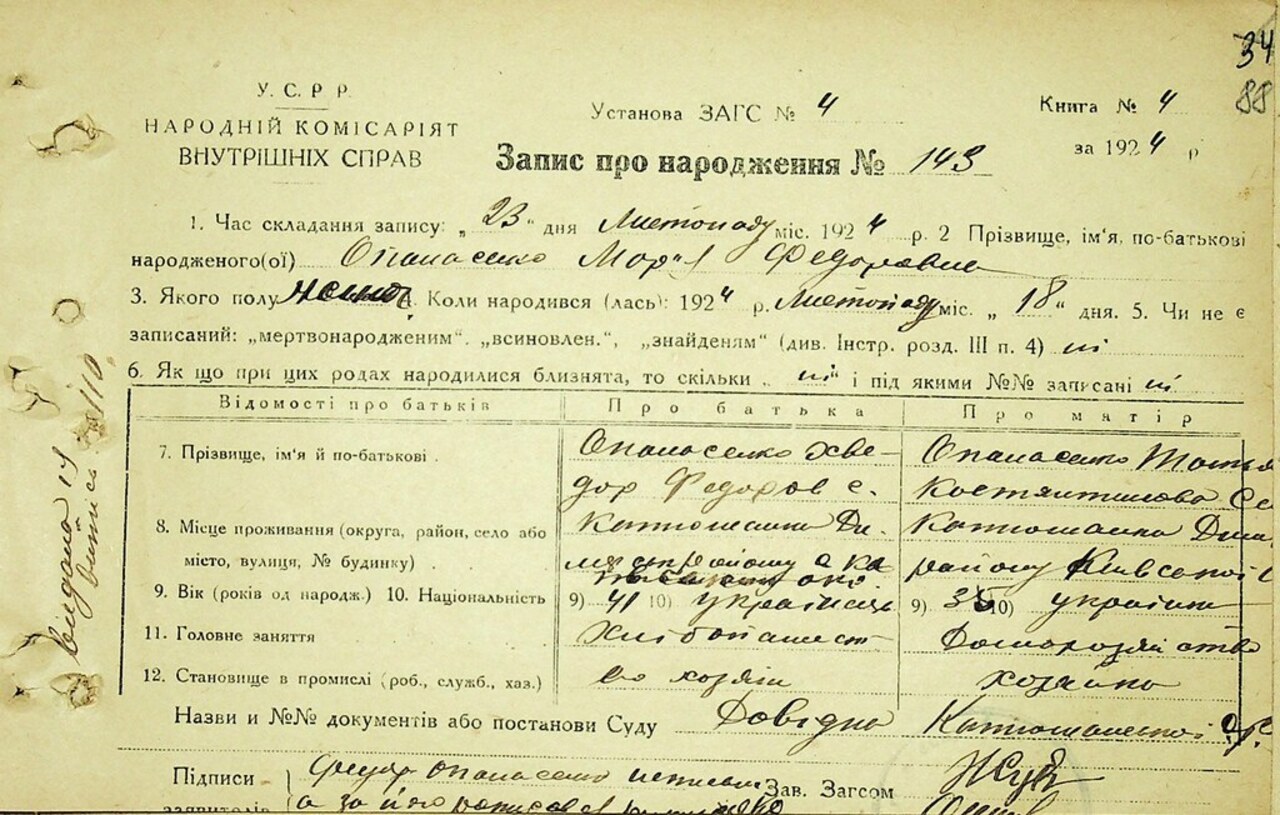 34
88
У. С. Р. Р.
НАРОДНІЙ КОМІСАРІЯТ
ВНУТРІШНІХ СПРАВ
Установа ЗАГС № 4
Книга № 4
за 1924 р
Запис про народження № 143
1. Час складання запису: „23“ дня Листопаду міс. 1924 р. 2 Прізвище, ім'я, по-батькові
народженого(ої) Опанасенко Марія Федоровна
3. Якого полу 4. Коли народився (лась): 1924 р. Листопаду міс. „18“ дня. 5. Чи не є
записаний: „мертвонародженим“. „всиновлен.“, „знайденям“ (див. Інстр. розд. III п. 4) ні
6. Як що при цих родах народилися близнята, то скільки „ні“ і під якими №№ записані ні
Відомості про батьків Про батька Про матір
7. Прізвище, ім'я й по-батькові . Опанасенко Хве- Опанасенко
дор Федоров с. Костянтинова Се
8. Місце проживання (округа, район, село або Катюшанка Ди- Катюшанка Дим
місто, вулиця, № будинку) . району району Київської
9. Вік (років од народж.) 10. Національність 9) 41 10) українець 9) 10) українк
11. Головне заняття Хлібопашест Домохозяйство
12. Становище в промислі (роб., служб., хаз.) во хозяїн хозяйка
Назви и №№ документів або постанови Суду Довідка Катюшанської
Підписи Федор Опанасенко Зав. Загсом
заявителів а за його
видано
витяг 110